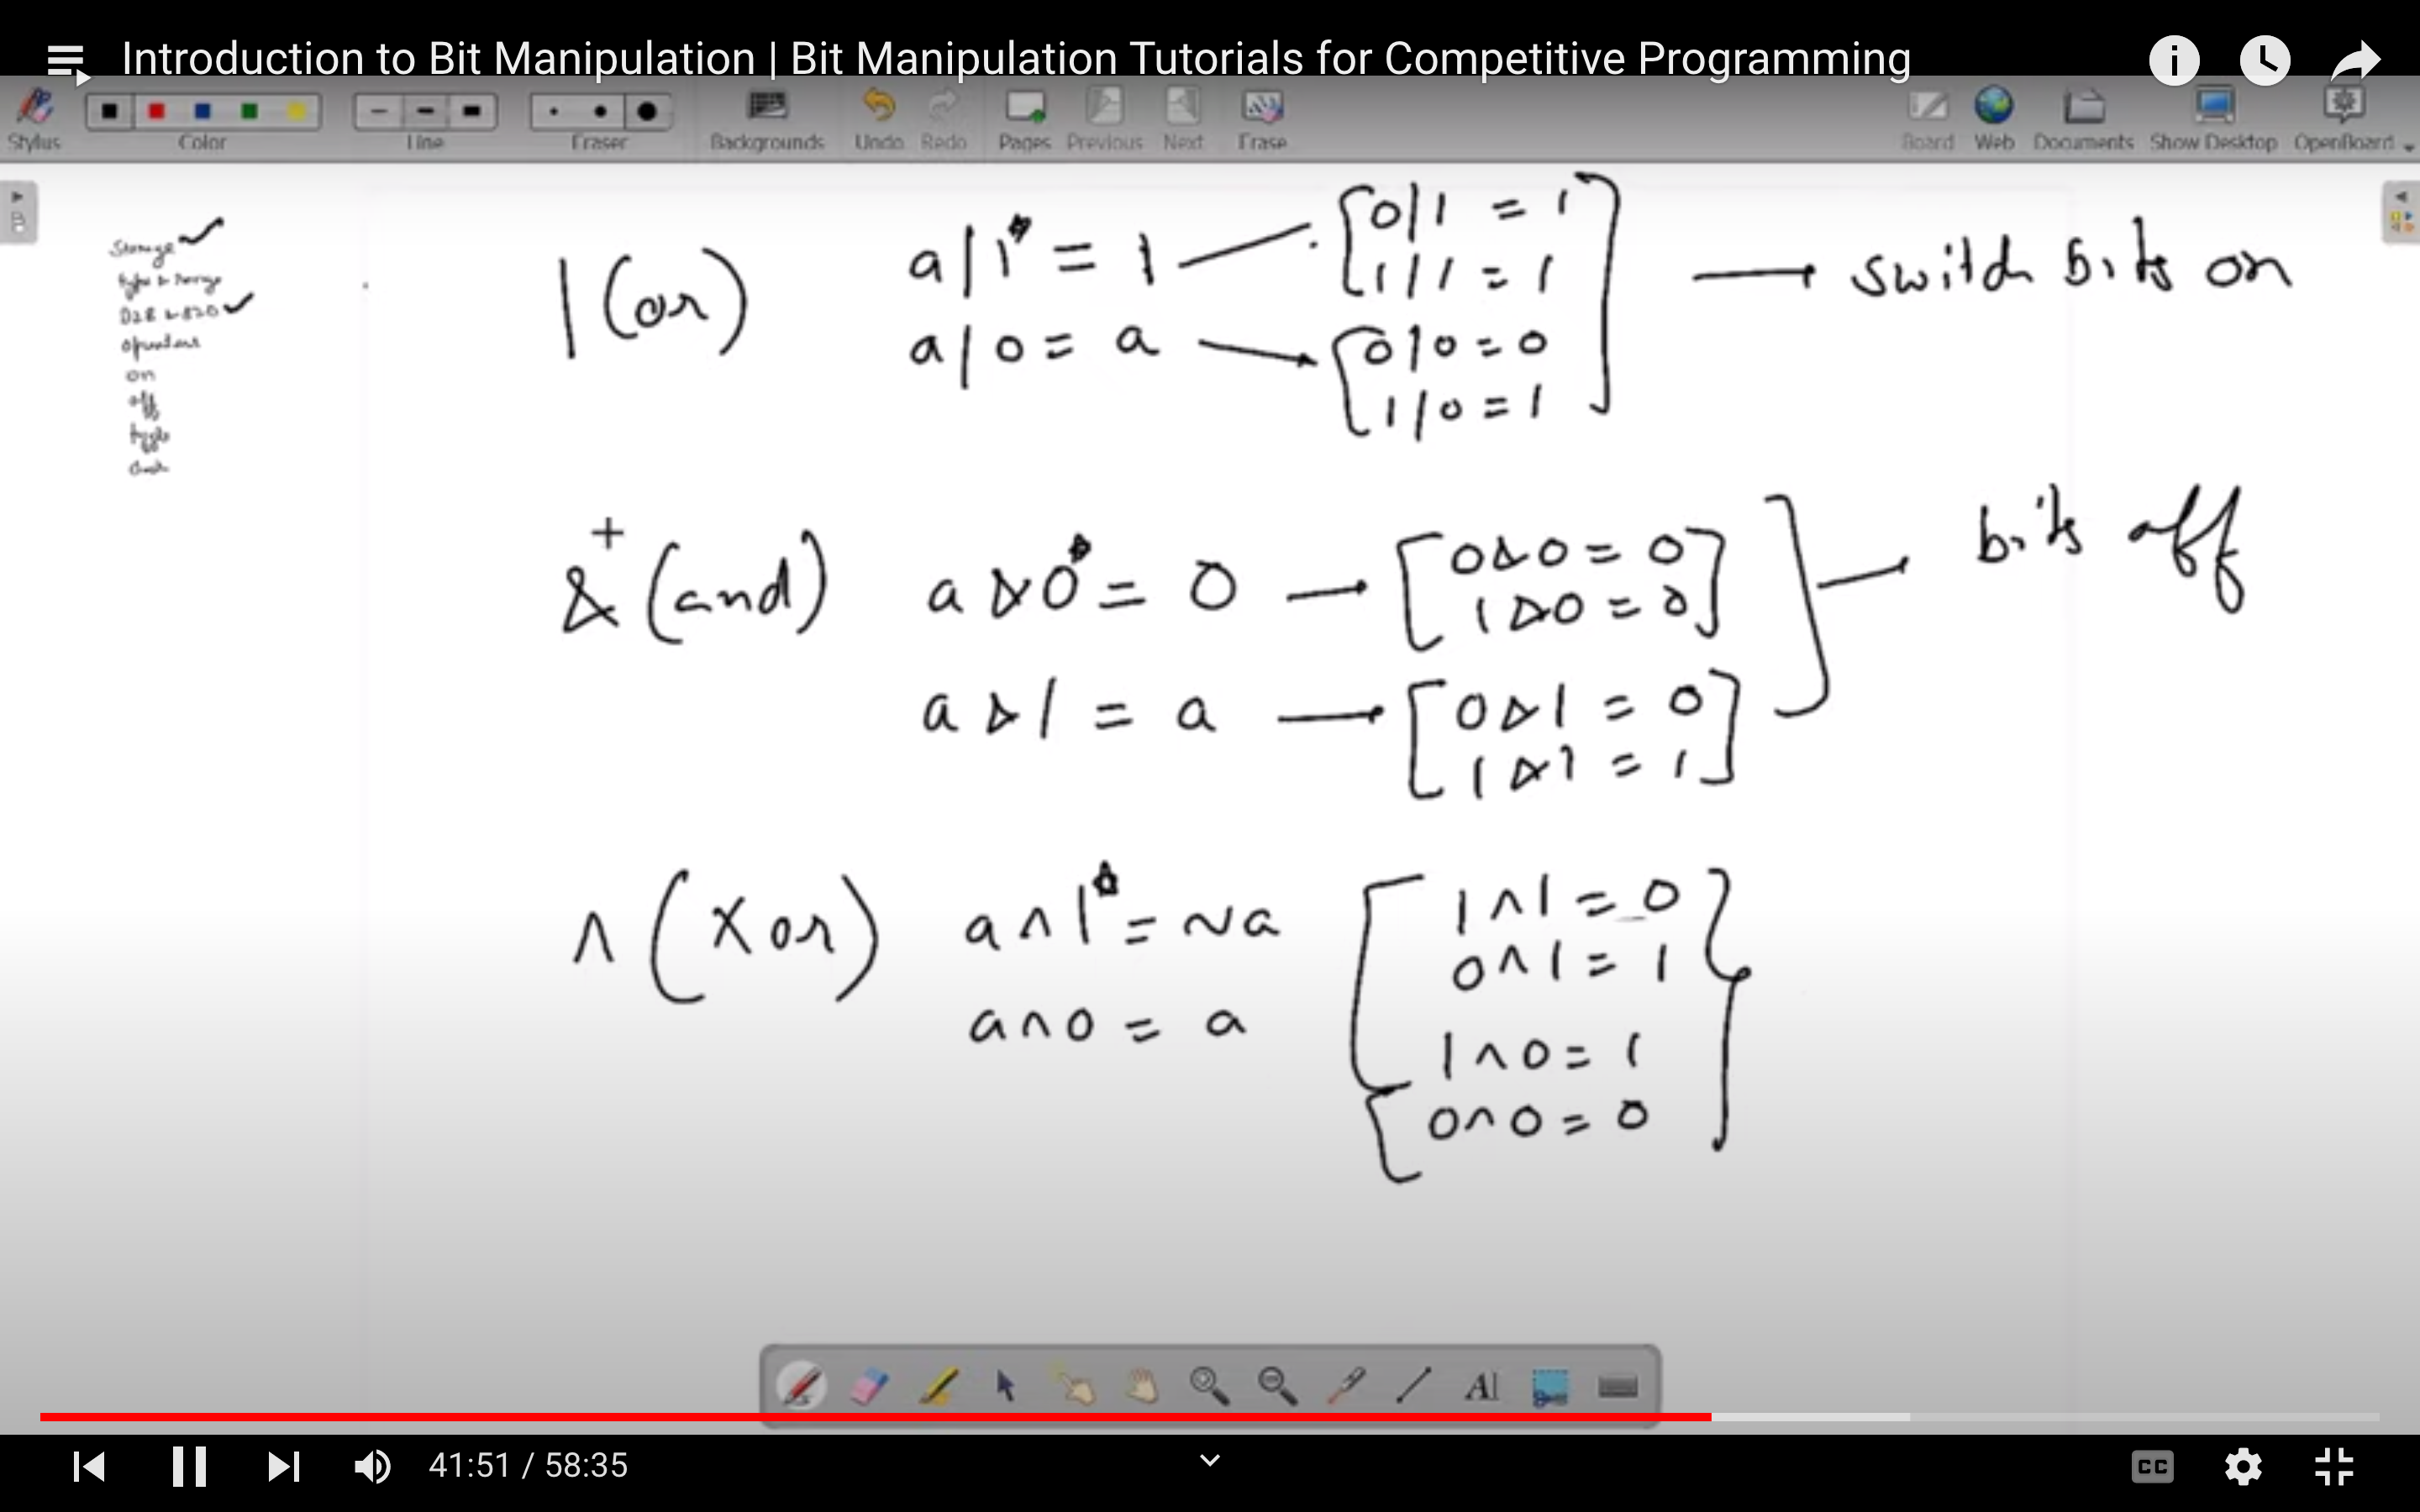 Introduction to Bit Manipulation | Bit Manipulation Tutorials for Competitive Programming
Stylus Color Line Eraser Backgrounds Undo Redo Pages Previous Next Erase Board Web Documents Show Desktop OpenBoard
Storage
type & range
D2B & B2D
operators
on
off
toggle
check
| (or)
a | 1 = 1
0 | 1 = 1
1 | 1 = 1
a | 0 = a
0 | 0 = 0
1 | 0 = 1
switch bits on
+
& (and)
a & 0 = 0
0 & 0 = 0
1 & 0 = 0
bits off
a & 1 = a
0 & 1 = 0
1 & 1 = 1
^ (xor)
a ^ 1 = ~a
1 ^ 1 = 0
0 ^ 1 = 1
a ^ 0 = a
1 ^ 0 = 1
0 ^ 0 = 0
AI
41:51 / 58:35
CC